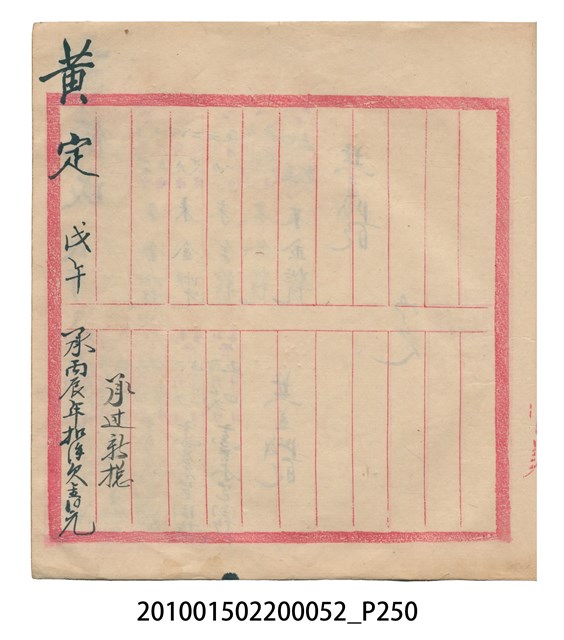 黃定 戊午 承丙辰年扣來欠壽元
承过新摠
201001502200052_P250